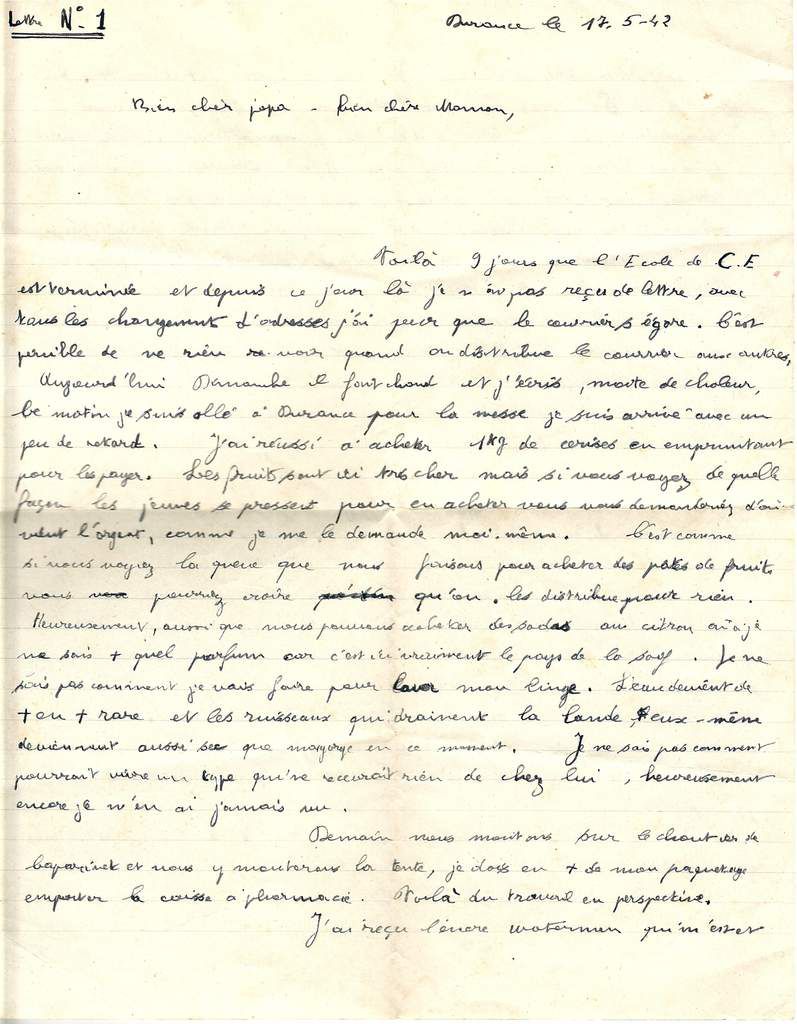 Lettre N° 1
Durance le 17.5-42
Bien cher papa - bien chère Maman,
Voilà 9 jours que l'Ecole de C.E
est terminée et depuis ce jour là je n'ai pas reçu de lettre, avec
tous les changements d'adresses j'ai peur que le courrier s'égare. C'est
pénible de ne rien voir quand on distribue le courrier aux autres,
Aujourd'hui Dimanche il fait chaud et j'écris, morte de chaleur,
Ce matin je suis allé à Durance pour la messe je suis arrivé avec un
peu de retard. J'ai réussi à acheter 1kg de cerises en empruntant
pour les payer. Les fruits sont ici très cher mais si vous voyez de quelle
façon les jeunes se pressent pour en acheter vous vous demanderiez d'où
vient l'argent, comme je me le demande moi-même. C'est comme
si vous voyiez la queue que nous faisons pour acheter des pates de fruits
vous pourriez croire qu'on les distribue pour rien.
Heureusement, aussi que nous pouvons acheter des sodas au citron où à je
ne sais + quel parfum car c'est ici vraiment le pays de la soif. Je ne
sais pas comment je vais faire pour laver mon linge. L'eau devient de
+ en + rare et les ruisseaux qui drainent la lande, eux-même
deviennent aussi sec que ma gorge en ce moment. Je ne sais pas comment
pourrait vivre un type qui ne recevrait rien de chez lui, heureusement
encore je n'en ai jamais vu.
Demain nous montons sur le chantier de
et nous y monterons la tente, je dois en + de mon paquetage
emporter la caisse à pharmacie. Voilà du travail en perspective.
J'ai reçu l'encre waterman qui m'est et